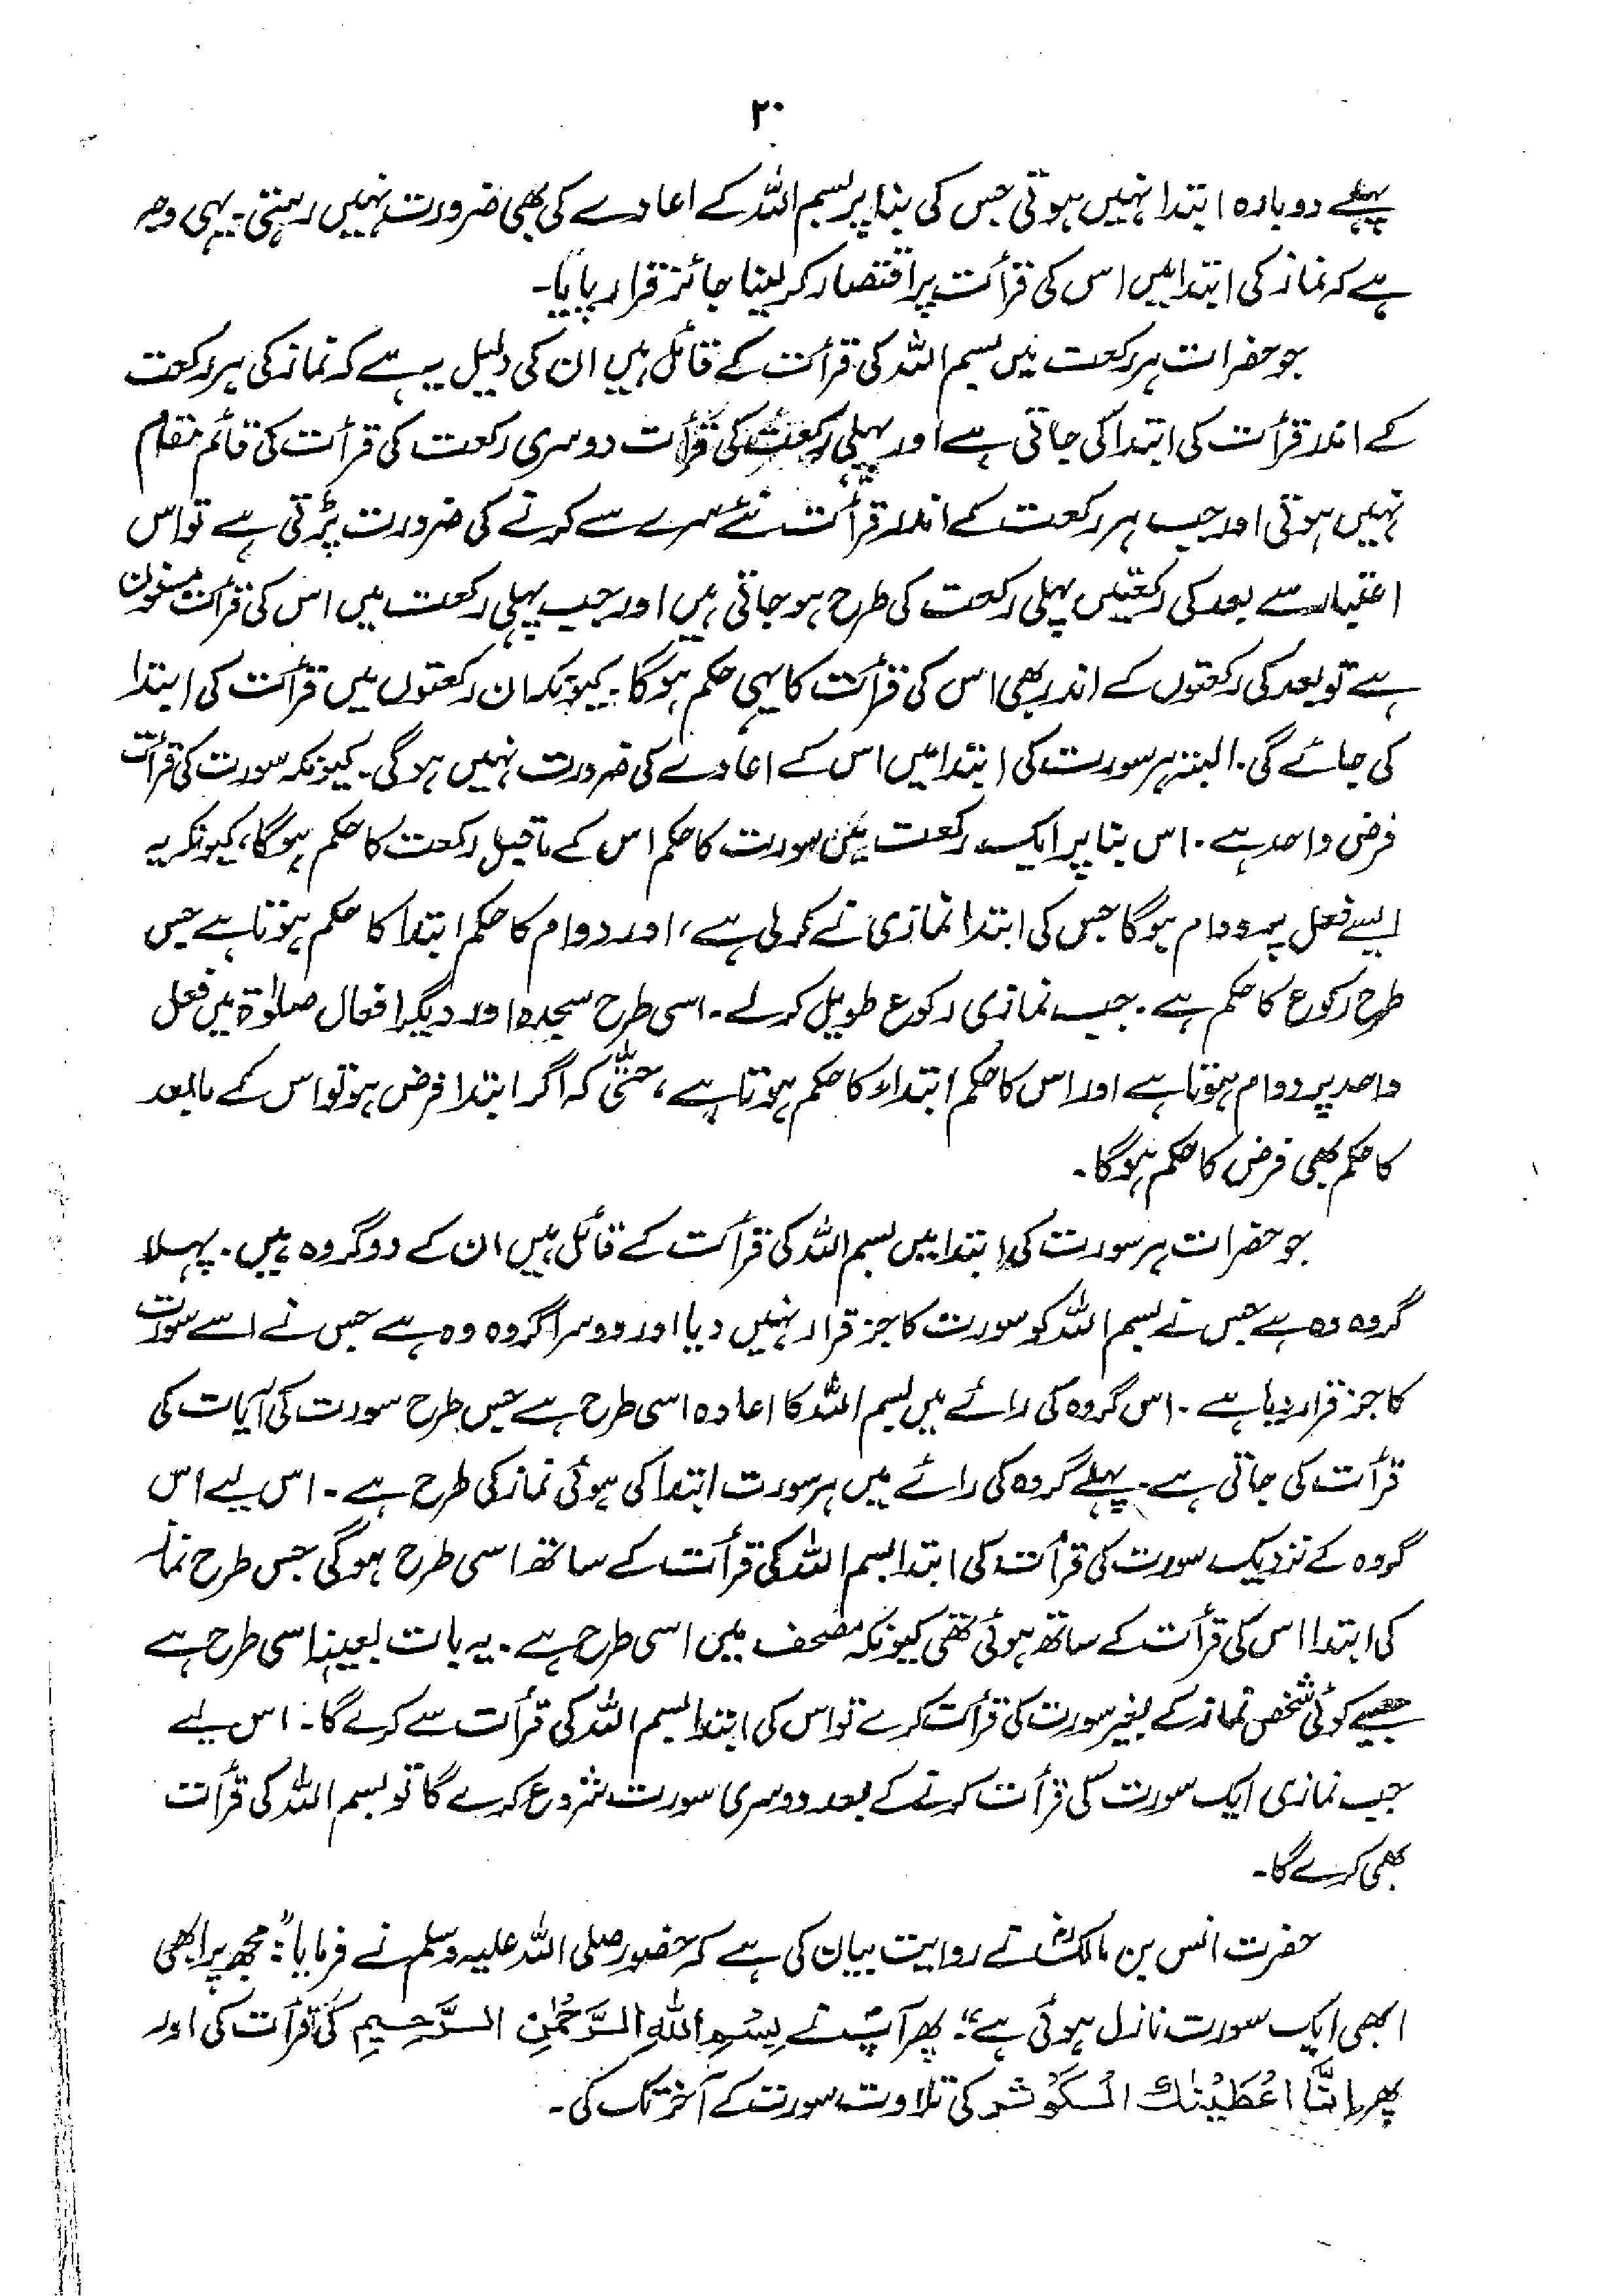 ۲۰
پہلے دوبارہ ابتدا نہیں ہوتی جس کی بنا پر بسم اللہ کے اعادے کی بھی ضرورت نہیں رہتی۔ یہی وجہ
ہے کہ نماز کی ابتدا میں اس کی قرأت پر اقتصار کر لینا جائز قرار پایا۔
جو حضرات ہر رکعت میں بسم اللہ کی قرأت کے قائل ہیں ان کی دلیل یہ ہے کہ نماز کی ہر رکعت
کے اندر قرأت کی ابتدا کی جاتی ہے اور پہلی رکعت کی قرأت دوسری رکعت کی قرأت کی قائم مقام
نہیں ہوتی اور جب ہر رکعت کے اندر قرأت نئے سرے سے کرنے کی ضرورت پڑتی ہے تو اس
اعتبار سے بعد کی رکعتیں پہلی رکعت کی طرح ہو جاتی ہیں اور جب پہلی رکعت میں اس کی قرأت مسنون
ہے تو بعد کی رکعتوں کے اندر بھی اس کی قرأت کا یہی حکم ہوگا۔ کیونکہ ان رکعتوں میں قرأت کی ابتدا
کی جائے گی۔ البتہ ہر سورت کی ابتدا میں اس کے اعادے کی ضرورت نہیں ہوگی۔ کیونکہ سورت کی قرأت
فرض واحد ہے۔ اس بنا پر ایک رکعت میں سورت کا حکم اس کے ماقبل رکعت کا حکم ہوگا، کیونکہ یہ
ایسے فعل پر دوام ہوگا جس کی ابتدا نمازی نے کرلی ہے، اور دوام کا حکم ابتدا کا حکم ہوتا ہے جس
طرح رکوع کا حکم ہے۔ جب نمازی رکوع طویل کرلے۔ اسی طرح سجدہ اور دیگر افعال صلوٰۃ میں فعل
واحد پر دوام ہوتا ہے اور اس کا حکم ابتداء کا حکم ہوتا ہے، حتیّٰ کہ اگر ابتدا فرض ہو تو اس کے مابعد
کا حکم بھی فرض کا حکم ہوگا۔
جو حضرات ہر سورت کی ابتدا میں بسم اللہ کی قرأت کے قائل ہیں ان کے دو گروہ ہیں۔ پہلا
گروہ وہ ہے جس نے بسم اللہ کو سورت کا جز قرار نہیں دیا اور دوسرا گروہ وہ ہے جس نے اسے سورت
کا جز قرار دیا ہے۔ اس گروہ کی رائے میں بسم اللہ کا اعادہ اسی طرح ہے جس طرح سورت کی آیات کی
قرأت کی جاتی ہے۔ پہلے گروہ کی رائے میں ہر سورت ابتدا کی ہوئی نماز کی طرح ہے۔ اس لیے اس
گروہ کے نزدیک سورت کی قرأت کی ابتدا بسم اللہ کی قرأت کے ساتھ اسی طرح ہوگی جس طرح نماز
کی ابتدا اس کی قرأت کے ساتھ ہوئی تھی کیونکہ مصحف میں اسی طرح ہے۔ یہ بات بعینہٖ اسی طرح ہے
جیسے کوئی شخص نماز کے بغیر سورت کی قرأت کرے تو اس کی ابتدا بسم اللہ کی قرأت سے کرے گا۔ اس لیے
جب نمازی ایک سورت کی قرأت کرنے کے بعد دوسری سورت شروع کرے گا تو بسم اللہ کی قرأت
بھی کرے گا۔
حضرت انس بن مالکؓ نے روایت بیان کی ہے کہ حضور صلی اللہ علیہ وسلم نے فرمایا: "مجھ پر ابھی
ابھی ایک سورت نازل ہوئی ہے"۔ پھر آپؐ نے بِسْمِ اللہِ الرَّحْمٰنِ الرَّحِیْمِ کی قرأت کی اور
پھر اِنَّا اَعْطَیْنٰكَ الْكَوْثَر کی تلاوت سورت کے آخر تک کی۔